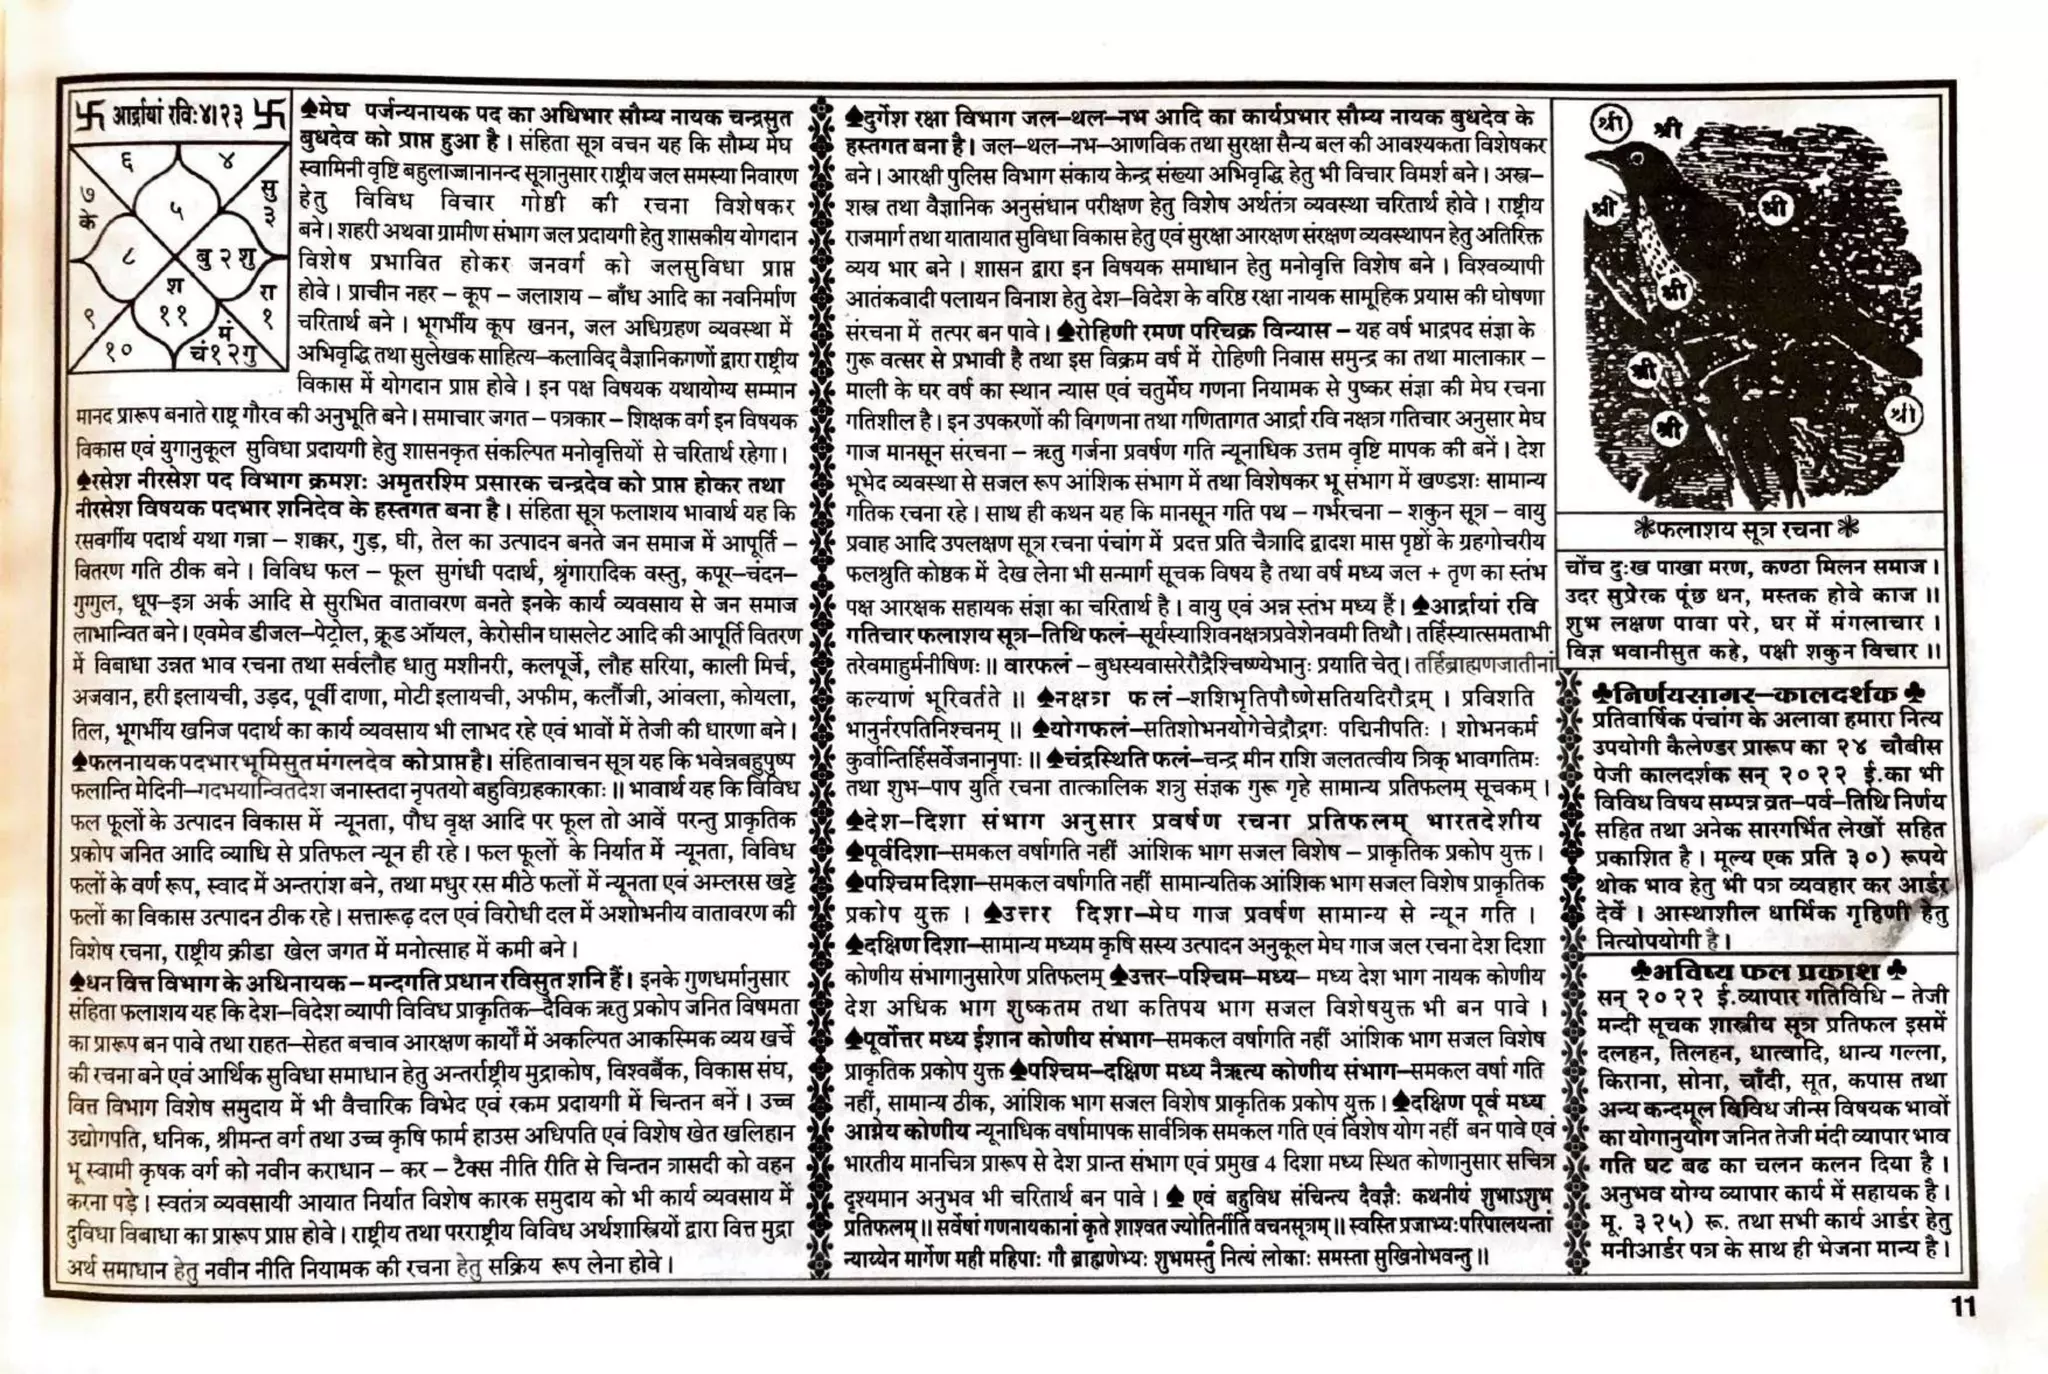 卐 आर्द्रायां रविः४।२३ 卐
६
४
७
के
सु
३
५
८
बु २ शु
श
११
९
रा
१
१०
मं
चं१२गु
♠मेघ पर्जन्यनायक पद का अधिभार सौम्य नायक चन्द्रसुत
बुधदेव को प्राप्त हुआ है । संहिता सूत्र वचन यह कि सौम्य मेघ
स्वामिनी वृष्टि बहुलाज्जानानन्द सूत्रानुसार राष्ट्रीय जल समस्या निवारण
हेतु विविध विचार गोष्ठी की रचना विशेषकर
बने । शहरी अथवा ग्रामीण संभाग जल प्रदायगी हेतु शासकीय योगदान
विशेष प्रभावित होकर जनवर्ग को जलसुविधा प्राप्त
होवे । प्राचीन नहर – कूप – जलाशय – बाँध आदि का नवनिर्माण
चरितार्थ बने । भूगर्भीय कूप खनन, जल अधिग्रहण व्यवस्था में
अभिवृद्धि तथा सुलेखक साहित्य–कलाविद् वैज्ञानिकगणों द्वारा राष्ट्रीय
विकास में योगदान प्राप्त होवे । इन पक्ष विषयक यथायोग्य सम्मान
मानद प्रारूप बनाते राष्ट्र गौरव की अनुभूति बने । समाचार जगत – पत्रकार – शिक्षक वर्ग इन विषयक
विकास एवं युगानुकूल सुविधा प्रदायगी हेतु शासनकृत संकल्पित मनोवृत्तियों से चरितार्थ रहेगा ।
♠रसेश नीरसेश पद विभाग क्रमशः अमृतरश्मि प्रसारक चन्द्रदेव को प्राप्त होकर तथा
नीरसेश विषयक पदभार शनिदेव के हस्तगत बना है । संहिता सूत्र फलाशय भावार्थ यह कि
रसवर्गीय पदार्थ यथा गन्ना – शक्कर, गुड़, घी, तेल का उत्पादन बनते जन समाज में आपूर्ति –
वितरण गति ठीक बने । विविध फल – फूल सुगंधी पदार्थ, श्रृंगारादिक वस्तु, कपूर–चंदन–
गुग्गुल, धूप–इत्र अर्क आदि से सुरभित वातावरण बनते इनके कार्य व्यवसाय से जन समाज
लाभान्वित बने । एवमेव डीजल–पेट्रोल, क्रूड ऑयल, केरोसीन घासलेट आदि की आपूर्ति वितरण
में विबाधा उन्नत भाव रचना तथा सर्वलौह धातु मशीनरी, कलपूर्जे, लौह सरिया, काली मिर्च,
अजवान, हरी इलायची, उड़द, पूर्वी दाणा, मोटी इलायची, अफीम, कलौंजी, आंवला, कोयला,
तिल, भूगर्भीय खनिज पदार्थ का कार्य व्यवसाय भी लाभद रहे एवं भावों में तेजी की धारणा बने ।
♠फलनायक पदभार भूमिसुत मंगलदेव को प्राप्त है। संहितावाचन सूत्र यह कि भवेन्नबहुपुष्प
फलान्ति मेदिनी–गदभयान्वितदेश जनास्तदा नृपतयो बहुविग्रहकारकाः ॥ भावार्थ यह कि विविध
फल फूलों के उत्पादन विकास में न्यूनता, पौध वृक्ष आदि पर फूल तो आवें परन्तु प्राकृतिक
प्रकोप जनित आदि व्याधि से प्रतिफल न्यून ही रहे । फल फूलों के निर्यात में न्यूनता, विविध
फलों के वर्ण रूप, स्वाद में अन्तरांश बने, तथा मधुर रस मीठे फलों में न्यूनता एवं अम्लरस खट्टे
फलों का विकास उत्पादन ठीक रहे । सत्तारूढ़ दल एवं विरोधी दल में अशोभनीय वातावरण की
विशेष रचना, राष्ट्रीय क्रीडा खेल जगत में मनोत्साह में कमी बने ।
♠धन वित्त विभाग के अधिनायक – मन्दगति प्रधान रविसुत शनि हैं। इनके गुणधर्मानुसार
संहिता फलाशय यह कि देश–विदेश व्यापी विविध प्राकृतिक–दैविक ऋतु प्रकोप जनित विषमता
का प्रारूप बन पावे तथा राहत–सेहत बचाव आरक्षण कार्यों में अकल्पित आकस्मिक व्यय खर्चे
की रचना बने एवं आर्थिक सुविधा समाधान हेतु अन्तर्राष्ट्रीय मुद्राकोष, विश्वबैंक, विकास संघ,
वित्त विभाग विशेष समुदाय में भी वैचारिक विभेद एवं रकम प्रदायगी में चिन्तन बनें । उच्च
उद्योगपति, धनिक, श्रीमन्त वर्ग तथा उच्च कृषि फार्म हाउस अधिपति एवं विशेष खेत खलिहान
भू स्वामी कृषक वर्ग को नवीन कराधान – कर – टैक्स नीति रीति से चिन्तन त्रासदी को वहन
करना पड़े । स्वतंत्र व्यवसायी आयात निर्यात विशेष कारक समुदाय को भी कार्य व्यवसाय में
दुविधा विबाधा का प्रारूप प्राप्त होवे । राष्ट्रीय तथा परराष्ट्रीय विविध अर्थशास्त्रियों द्वारा वित्त मुद्रा
अर्थ समाधान हेतु नवीन नीति नियामक की रचना हेतु सक्रिय रूप लेना होवे ।
♠दुर्गेश रक्षा विभाग जल–थल–नभ आदि का कार्यप्रभार सौम्य नायक बुधदेव के
हस्तगत बना है । जल–थल–नभ–आणविक तथा सुरक्षा सैन्य बल की आवश्यकता विशेषकर
बने । आरक्षी पुलिस विभाग संकाय केन्द्र संख्या अभिवृद्धि हेतु भी विचार विमर्श बने । अस्त्र–
शस्त्र तथा वैज्ञानिक अनुसंधान परीक्षण हेतु विशेष अर्थतंत्र व्यवस्था चरितार्थ होवे । राष्ट्रीय
राजमार्ग तथा यातायात सुविधा विकास हेतु एवं सुरक्षा आरक्षण संरक्षण व्यवस्थापन हेतु अतिरिक्त
व्यय भार बने । शासन द्वारा इन विषयक समाधान हेतु मनोवृत्ति विशेष बने । विश्वव्यापी
आतंकवादी पलायन विनाश हेतु देश–विदेश के वरिष्ठ रक्षा नायक सामूहिक प्रयास की घोषणा
संरचना में तत्पर बन पावे । ♠रोहिणी रमण परिचक्र विन्यास – यह वर्ष भाद्रपद संज्ञा के
गुरू वत्सर से प्रभावी है तथा इस विक्रम वर्ष में रोहिणी निवास समुन्द्र का तथा मालाकार –
माली के घर वर्ष का स्थान न्यास एवं चतुर्मेघ गणना नियामक से पुष्कर संज्ञा की मेघ रचना
गतिशील है । इन उपकरणों की विगणना तथा गणितागत आर्द्रा रवि नक्षत्र गतिचार अनुसार मेघ
गाज मानसून संरचना – ऋतु गर्जना प्रवर्षण गति न्यूनाधिक उत्तम वृष्टि मापक की बनें । देश
भूभेद व्यवस्था से सजल रूप आंशिक संभाग में तथा विशेषकर भू संभाग में खण्डशः सामान्य
गतिक रचना रहे । साथ ही कथन यह कि मानसून गति पथ – गर्भरचना – शकुन सूत्र – वायु
प्रवाह आदि उपलक्षण सूत्र रचना पंचांग में प्रदत्त प्रति चैत्रादि द्वादश मास पृष्ठों के ग्रहगोचरीय
फलश्रुति कोष्ठक में देख लेना भी सन्मार्ग सूचक विषय है तथा वर्ष मध्य जल + तृण का स्तंभ
पक्ष आरक्षक सहायक संज्ञा का चरितार्थ है । वायु एवं अन्न स्तंभ मध्य हैं। ♠आर्द्रायां रवि
गतिचार फलाशय सूत्र–तिथि फलं–सूर्यस्याशिवनक्षत्रप्रवेशेनवमी तिथौ। तर्हिस्यात्समताभी
तरेवमाहुर्मनीषिणः ॥ वारफलं – बुधस्यवासरेरौद्रैश्चिष्ण्येभानुः प्रयाति चेत् । तर्हिब्राह्मणजातीनां
कल्याणं भूरिवर्तते ॥ ♠नक्षत्र फलं–शशिभृतिपौष्णेसतियदिरौद्रम् । प्रविशति
भानुर्नरपतिनिश्चनम् ॥ ♠योगफलं–सतिशोभनयोगेचेद्रौद्रगः पद्मिनीपतिः । शोभनकर्म
कुर्वान्तिर्हिसर्वेजनानृपाः ॥ ♠चंद्रस्थिति फलं–चन्द्र मीन राशि जलतत्वीय त्रिक् भावगतिमः
तथा शुभ–पाप युति रचना तात्कालिक शत्रु संज्ञक गुरू गृहे सामान्य प्रतिफलम् सूचकम् ।
♠देश–दिशा संभाग अनुसार प्रवर्षण रचना प्रतिफलम् भारतदेशीय
♠पूर्वदिशा–समकल वर्षागति नहीं आंशिक भाग सजल विशेष – प्राकृतिक प्रकोप युक्त ।
♠पश्चिम दिशा–समकल वर्षागति नहीं सामान्यतिक आंशिक भाग सजल विशेष प्राकृतिक
प्रकोप युक्त । ♠उत्तर दिशा–मेघ गाज प्रवर्षण सामान्य से न्यून गति ।
♠दक्षिण दिशा–सामान्य मध्यम कृषि सस्य उत्पादन अनुकूल मेघ गाज जल रचना देश दिशा
कोणीय संभागानुसारेण प्रतिफलम् ♠उत्तर–पश्चिम–मध्य– मध्य देश भाग नायक कोणीय
देश अधिक भाग शुष्कतम तथा कतिपय भाग सजल विशेषयुक्त भी बन पावे ।
♠पूर्वोत्तर मध्य ईशान कोणीय संभाग–समकल वर्षागति नहीं आंशिक भाग सजल विशेष
प्राकृतिक प्रकोप युक्त ♠पश्चिम–दक्षिण मध्य नैऋत्य कोणीय संभाग–समकल वर्षा गति
नहीं, सामान्य ठीक, आंशिक भाग सजल विशेष प्राकृतिक प्रकोप युक्त । ♠दक्षिण पूर्व मध्य
आग्नेय कोणीय न्यूनाधिक वर्षामापक सार्वत्रिक समकल गति एवं विशेष योग नहीं बन पावे एवं
भारतीय मानचित्र प्रारूप से देश प्रान्त संभाग एवं प्रमुख 4 दिशा मध्य स्थित कोणानुसार सचित्र
दृश्यमान अनुभव भी चरितार्थ बन पावे । ♠ एवं बहुविध संचिन्त्य दैवज्ञैः कथनीयं शुभाऽशुभ
प्रतिफलम् ॥ सर्वेषां गणनायकानां कृते शाश्वत ज्योतिर्नीति वचनसूत्रम् ॥ स्वस्ति प्रजाभ्यः परिपालयन्तां
न्याय्येन मार्गेण मही महिपाः गौ ब्राह्मणेभ्यः शुभमस्तुं नित्यं लोकाः समस्ता सुखिनोभवन्तु ॥
श्री श्री
श्री श्री
श्री
श्री
श्री श्री
❃फलाशय सूत्र रचना❃
चोंच दुःख पाखा मरण, कण्ठा मिलन समाज ।
उदर सुप्रेरक पूंछ धन, मस्तक होवे काज ॥
शुभ लक्षण पावा परे, घर में मंगलाचार ।
विज्ञ भवानीसुत कहे, पक्षी शकुन विचार ॥
♣निर्णयसागर–कालदर्शक♣
प्रतिवार्षिक पंचांग के अलावा हमारा नित्य
उपयोगी कैलेण्डर प्रारूप का २४ चौबीस
पेजी कालदर्शक सन् २०२२ ई.का भी
विविध विषय सम्पन्न व्रत–पर्व–तिथि निर्णय
सहित तथा अनेक सारगर्भित लेखों सहित
प्रकाशित है । मूल्य एक प्रति ३०) रूपये
थोक भाव हेतु भी पत्र व्यवहार कर आर्डर
देवें । आस्थाशील धार्मिक गृहिणी हेतु
नित्योपयोगी है ।
♣भविष्य फल प्रकाश♣
सन् २०२२ ई.व्यापार गतिविधि – तेजी
मन्दी सूचक शास्त्रीय सूत्र प्रतिफल इसमें
दलहन, तिलहन, धात्वादि, धान्य गल्ला,
किराना, सोना, चाँदी, सूत, कपास तथा
अन्य कन्दमूल विविध जीन्स विषयक भावों
का योगानुयोग जनित तेजी मंदी व्यापार भाव
गति घट बढ का चलन कलन दिया है ।
अनुभव योग्य व्यापार कार्य में सहायक है ।
मू. ३२५) रू. तथा सभी कार्य आर्डर हेतु
मनीआर्डर पत्र के साथ ही भेजना मान्य है ।
11